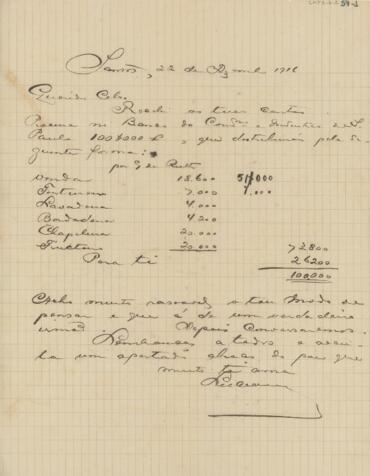 Santos, 22 de Abril 1916
Querido Celso.
Recebi as tuas cartas
no Banco do Com.º e Industria de S.
Paulo 100$000 e, que distribuirás pela se
guinte forma:
18.600 51$000
Tintureiro 7.000 1.000
Lavadeira 4.000
Bordadeira 4.200
Chapeleira 20.000
20.000 72800
Para ti 26200
100,000
Acho muito rasoavel o teu modo de
pensar e que é de um verdadeiro
irmão. Depois conversaremos.
Lembranças a todos e acei-
ta um apertado abraço do pae que
muito te ama